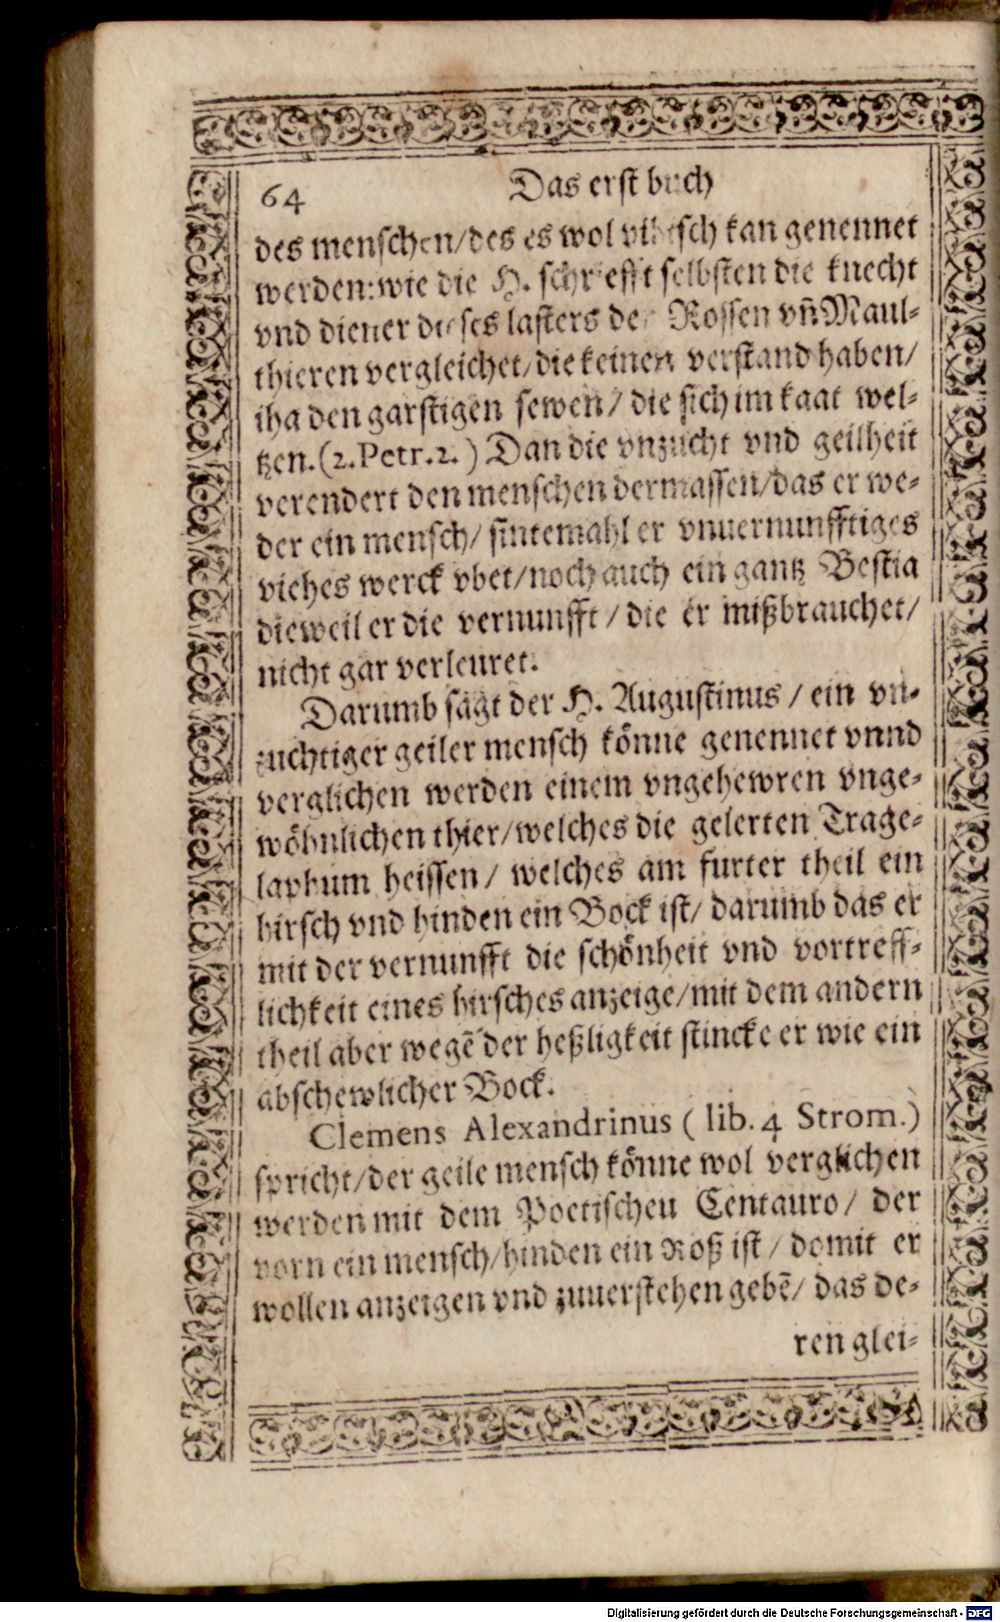 64 Das erst buch
des menschen/des es wol vihisch kan genennet
werden: wie die H. schriefft selbsten die knecht
vnd diener dieses lasters den Rossen vñ Maul-
thieren vergleichet/die keinen verstand haben/
iha den garstigen sewen/ die sich im kaat wel-
tzen. (2. Petr. 2.) Dan die vnzucht vnd geilheit
verendert den menschen dermassen/das er we-
der ein mensch/ sintemahl er vnuernunfftiges
viehes werck vbet/noch auch ein gantz Bestia
dieweil er die vernunfft / die er mißbrauchet/
nicht gar verleuret.
Darumb sagt der H. Augustinus / ein vn-
zuchtiger geiler mensch könne genennet vnnd
verglichen werden einem vngehewren vnge-
wöhnlichen thier/welches die gelerten Trage-
laphum heissen/ welches am furter theil ein
hirsch vnd hinden ein Bock ist/ darumb das er
mit der vernunfft die schönheit vnd vortreff-
lichkeit eines hirsches anzeige/mit dem andern
theil aber wegẽ der heßligkeit stincke er wie ein
abschewlicher Bock.
Clemens Alexandrinus ( lib. 4 Strom.)
spricht/der geile mensch könne wol verglichen
werden mit dem Poetischen Centauro/ der
vorn ein mensch/hinden ein Roß ist / domit er
wollen anzeigen vnd zuuerstehen gebẽ/ das de-
ren glei-
Digitalisierung gefördert durch die Deutsche Forschungsgemeinschaft - DFG